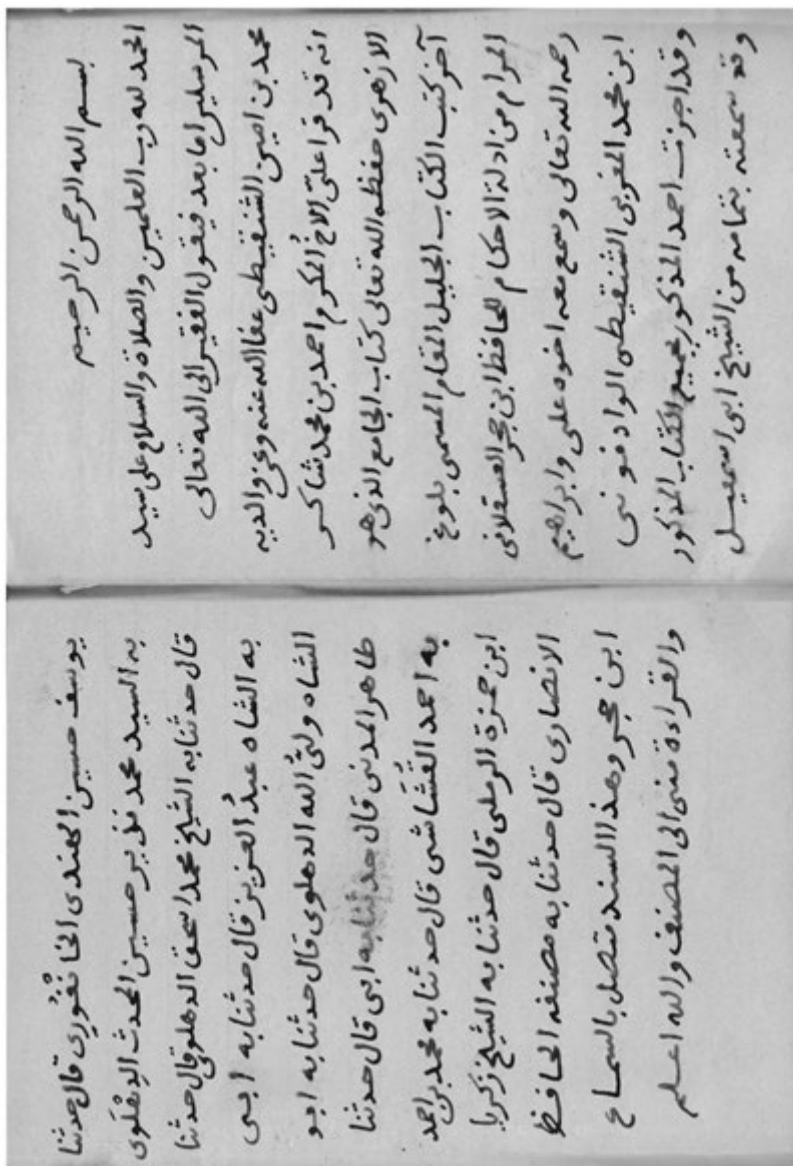 بسم الله الرحمن الرحيم
الحمد لله رب العلمين والصلاة والسلام على سيد
المرسلين اما بعد فيقول الفقير الى الله تعالى
محمد بن امين الشنقيطى عفا الله عنه وعن والديه
انه قد قرا علىّ الاخ المكرم احمد بن محمد شاكر
الازهرى حفظه الله تعالى كتاب الجامع الذى هو
آخر كتب الكتاب الجليل المقام المسمى بلوغ
المرام من ادلة الاحكام للحافظ ابن حجر العسقلانى
رحمه الله تعالى وسمع معه اخوه على وابراهيم
ابن محمد المغربى الشنقيطى الوادنونى
وقد اجزت احمد المذكور بجميع الكتاب المذكور
وقد سمعته بتمامه من الشيخ ابى اسمعيل
يوسف حسين الهندى الخانفُورى قال حدثنا
به السيد محمد نذير حسين المحدث الدهلوى
قال حدثنا به الشيخ محمد اسحق الدهلوى قال حدثنا
به الشاه عبدُ العزيز قال حدثنا به ابى
الشاه ولىُّ الله الدهلوى قال حدثنا به ابو
طاهر المدنى قال حدثنا به ابى قال حدثنا
به احمد القُشَاشى قال حدثنا به محمد بن احمد
ابن حمزة الرملى قال حدثنا به الشيخ زكريا
الانصارى قال حدثنا به مصنفه الحافظ
ابن حجر وهذا السند متصل بالسماع
والقراءة منى الى المصنف والله اعلم